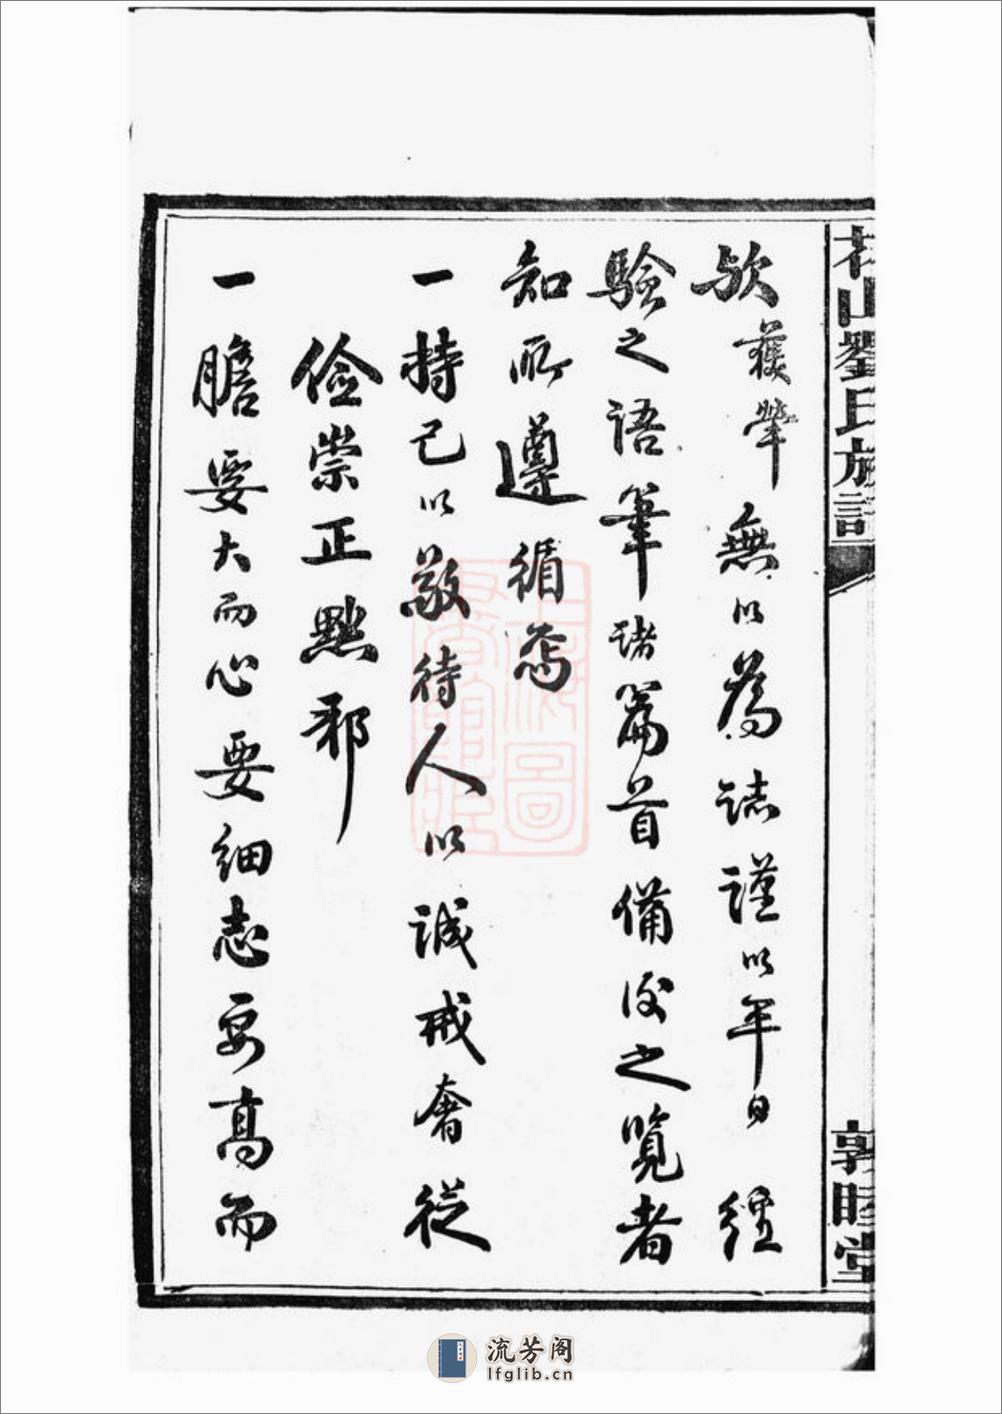 山劉氏族譜
敦睦堂
歟獲肇無以為誌謹以年日經
驗之語筆諸篇首備後之覽者
知所遵循焉
一持己以敬待人以誠戒奢從
儉崇正黜邪
一膽要大而心要細志要高而
流芳阁
lfglib.cn